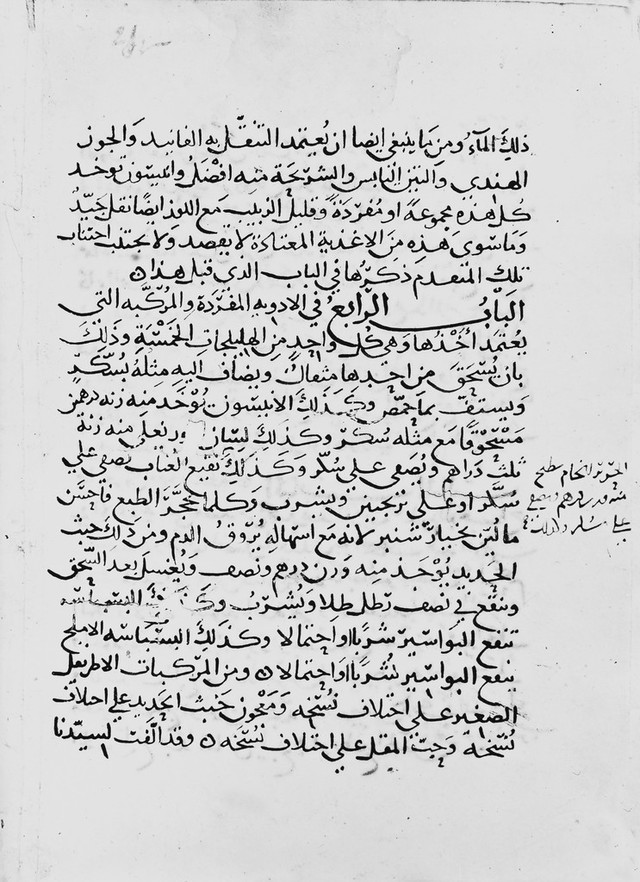 ذلك المآء ومن ما ينبغى ايضا ان يُعتمد التنقّل به الفانيد والجوز
الهندي والتين اليابس والشريحة منه افضل وانيسون توخد
كل هذه مجموعة او مفردَةً وقليل الزبيب مع اللوز ايضًا نقل جيّدُ
وَمَا سوى هَذِه من الاغذية المعتادة لا يقصد وَلا يجتنب اجتناب
تلك المتقدم ذكرها في الباب الدى قبل هذا ه
البَابُ الرابع في الادويه المفرَدة والمُركّبه التى
يعتمَد أخْذُها وَهي كل واحدٍ من الهليلجات الخمْسَة وذلك
بان يُسْحَق من احدِها مثقالٌ ويُضاف اليه مثلهُ بسُكّرٍ
وَيستفّ بماءِ حِمّص وكذَلك الانيسون يُوْخَد منه زنه درهمين
مَسْحُوْقًا مَع مثله سُكرّ وكذلك لسَان منه زنة
ثلث دَراهم ويُصَفى على سُكّر وَكَذلك نقيع العناب يُصفي علي
سُكّر او علي ترنجبين ويشرب وكلما تحجّرَ الطبع فاحسَن
ما لُيّن بخيار شنبر لانه مَع اسهاله يُروّقُ الدم ومن ذلك خبث
الحَديد يُوْخَذ منه وَزن درهم ونصف وَيُغسَل بعد السّحق
وينقع في نصف رَطل طلا وَيُشرَبُ وكذلك
تنفع البَواسير شربًا واحتمالا وكذلك البسباسه الاملج
ينفع البواسير شربًا واحتمالا ه ومن المركبات الاطريفل
الصغير على اختلاف نُسَخِه وَمَعْجُون خبث الحَديد على اختلاف
نُسَخه وَحبّ المقل علي اختلاف نسَخه ه وقد الّفت لسيّدنا